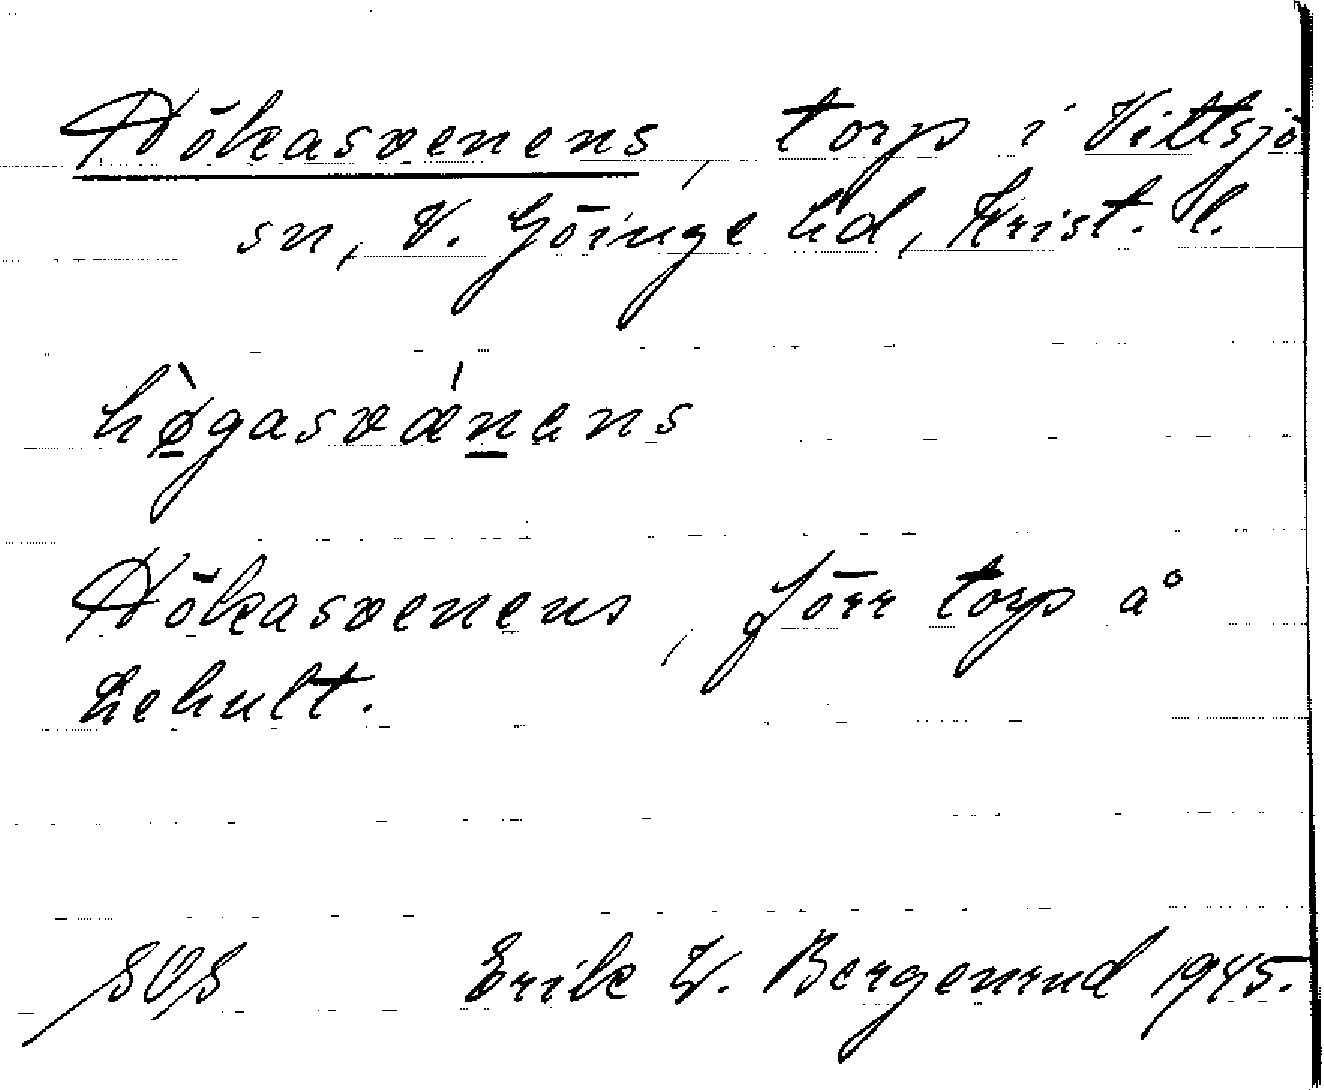 Hökasvenens, torp i Vittsjö
sn, V. Göinge hd, Krist. l.
hø̀gasvǽnens
Hökasvenens, förr torp å
Lehult.
SOS Erik W. Bergenrud 1945.